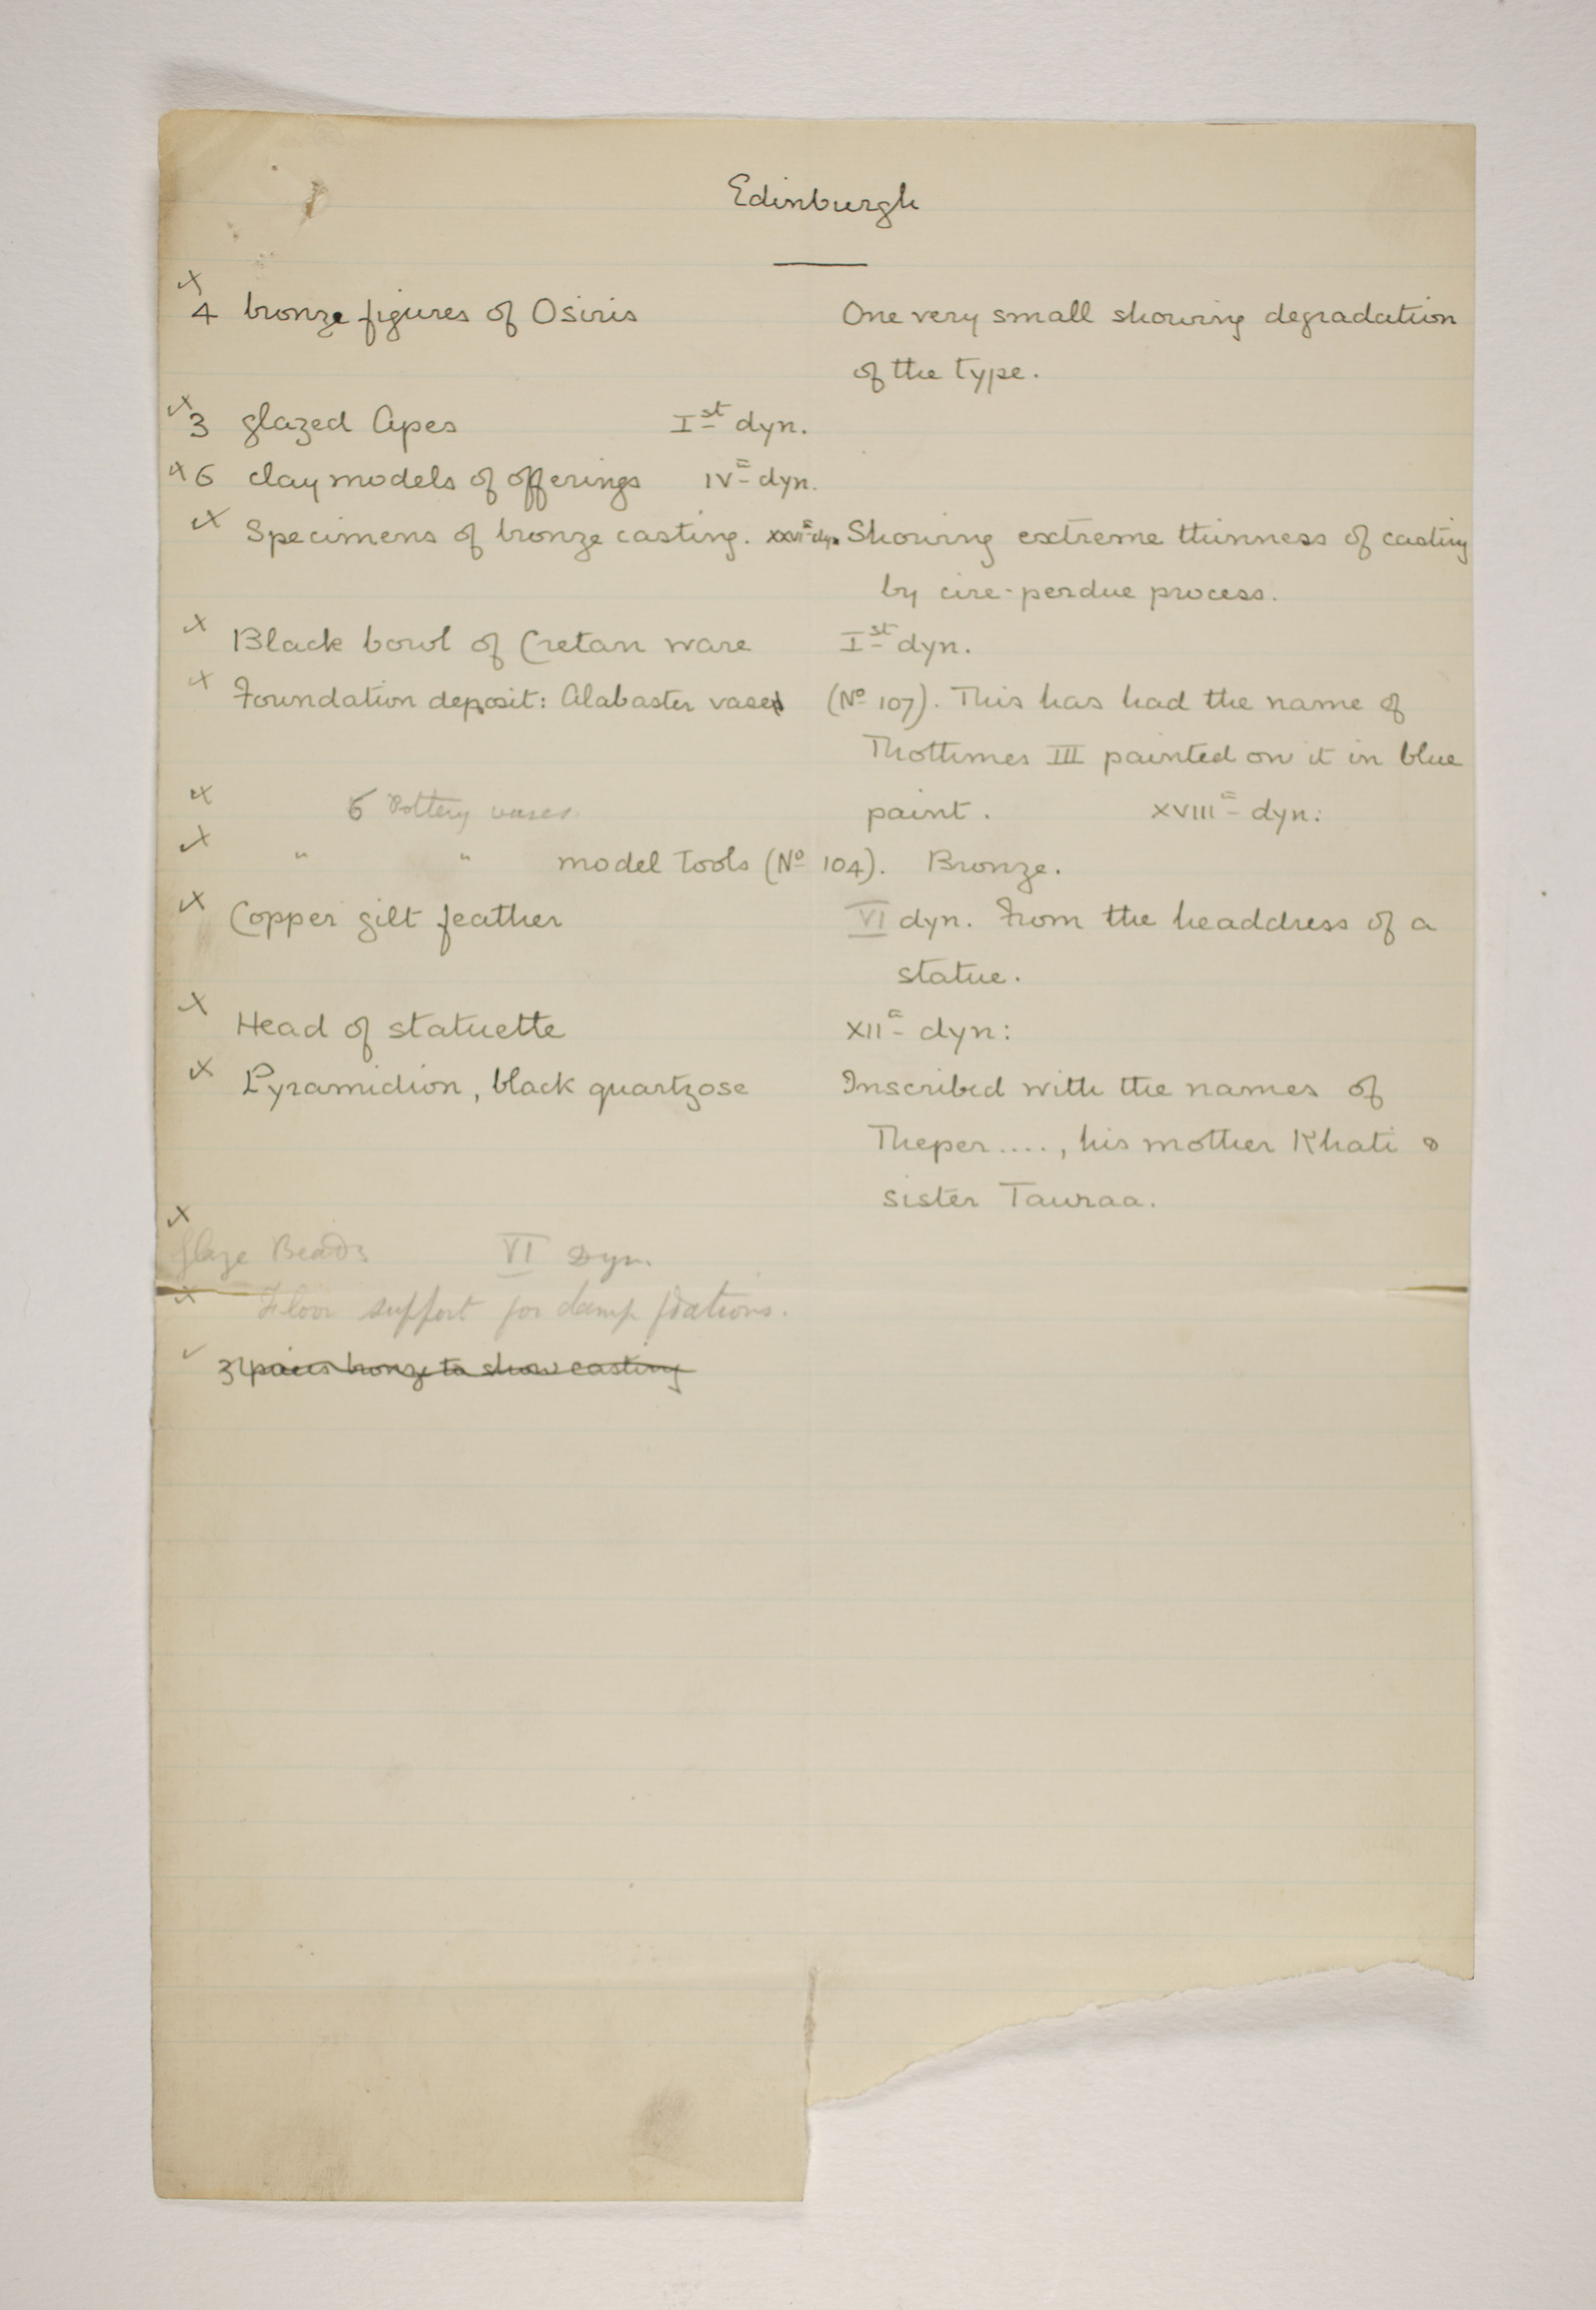 Edinburgh
4 bronze figures of Osiris One very small showing degradation
of the type.
3 glazed Apes Ist dyn.
6 clay models of offerings IV= dyn.
Specimens of bronze casting. XXVI= dyn. Showing extreme thinness of casting
by cire-perdue process.
Black bowl of Cretan ware Ist dyn.
Foundation deposit: Alabaster vase (No 107). This has had the name of
Thothmes III painted on it in blue
6 Pottery vases. paint. XVIII= dyn:
" " model tools (No 104). Bronze.
Copper gilt feather VI dyn. From the headdress of a
statue.
Head of statuette XII= dyn:
Pyramidion, black quartzose Inscribed with the names of
Theper...., his mother Khati &
sister Tauraa.
Glaze Beads VI Dyn.
Floor support for damp
3 pieces bronze to show casting